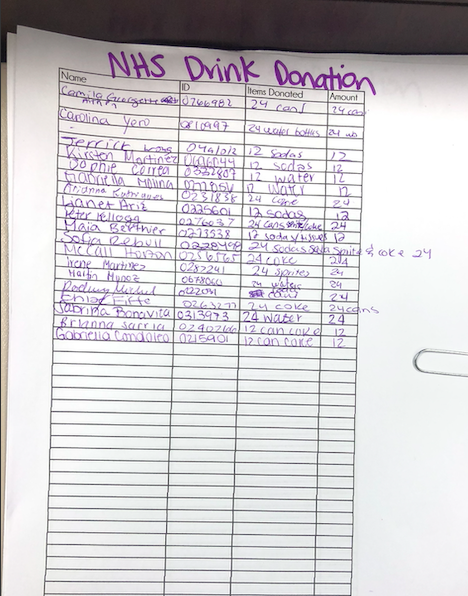 NHS Drink Donation
Name ID Items Donated Amount
Camila 0766982 24 cans 24 cans
Carolina Yero 0810997 24 water bottles 24
Jerrick 12 sodas 12
Kirsten Martinez 12 sodas 12
Sophie Correa 0222807 12 water 12
Gabriella Molina 12 water 12
Arianna Rodriguez 0231838 24 coke 24
Lianet Ariz 0225601 12 sodas 12
Peter Kellogg 0276037 24 cans 24
Maia Berthier 0273538 12 sodas 12
Sofia Rebull 24 sodas Sprite & coke 24
McCall Horton 0256565 24 coke 24
Irene Martinez 0287241 24 sprites 24
Martin Munoz 0678060 24 waters 24
24
Chloe 0263277 24 coke 24 cans
Sabrina Bonavita 0313973 24 water 24
Brianna Sarria 12 can coke 12
Gabriella 0215901 12 can coke 12